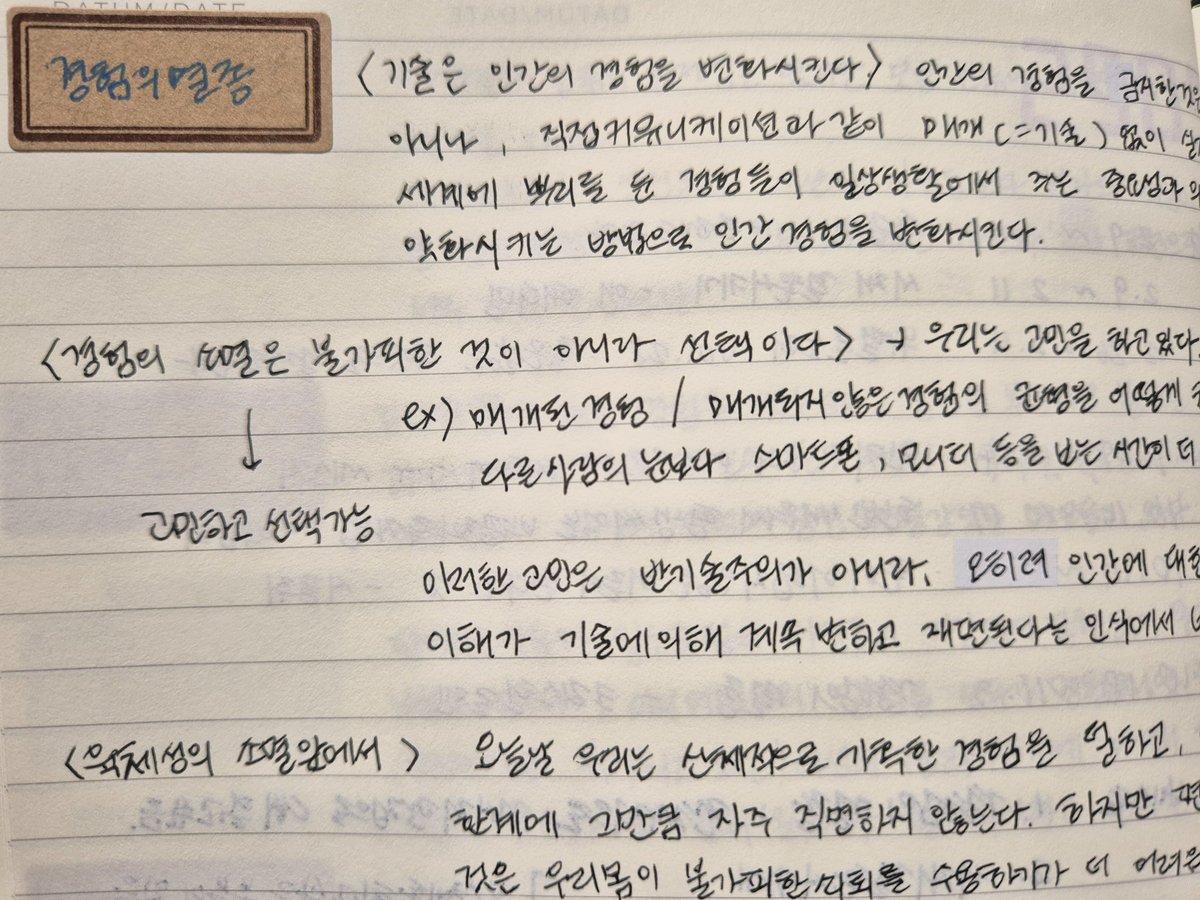 DATUM/DATE
경험의 멸종
<기술은 인간의 경험을 변화시킨다.> 인간의 경험을 금지한것은
아니나, 직접커뮤니케이션과 같이 매개(=기술) 없이
세계에 뿌리를 둔 경험들이 일상생활에서 주는 중요성과
약화시키는 방법으로 인간 경험을 변화시킨다.
<경험의 소멸은 불가피한 것이 아니라 선택이다> → 우리는 고민을 하고 있다.
ex) 매개된 경험 / 매개되지 않은 경험의 균형을 어떻게
↓ 다른 사람의 눈보다 스마트폰, 모니터 등을 보는 시간이 더
고민하고 선택가능
이러한 고민은 반기술주의가 아니라, 오히려 인간에 대한
이해가 기술에 의해 계속 변하고 재편된다는 인식에서
<육체성의 소멸앞에서> 오늘날 우리는 신체적으로 가혹한 경험을 덜 하고,
한계에 그만큼 자주 직면하지 않는다. 하지만
것은 우리몸이 불가피한 쇠퇴를 수용하기가 더 어려운